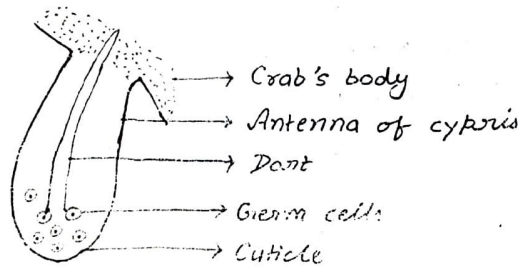 Crab's body
Antenna of cypris
Dart
Germ cells
Cuticle